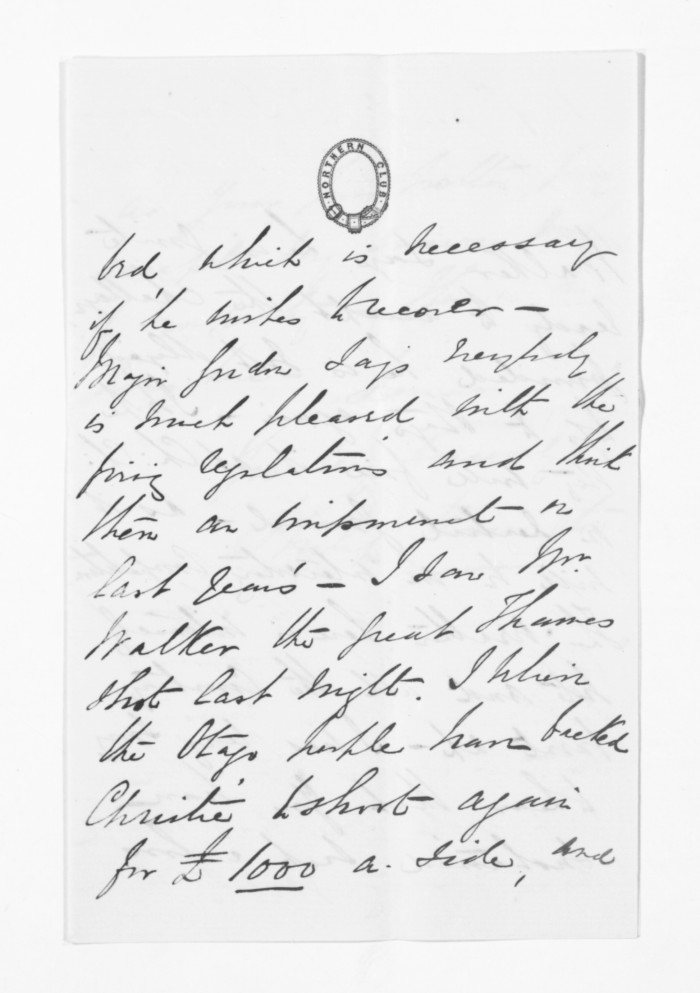 NORTHERN CLUB
bed, which is necessary
if he wishes to recover —
Major Gordon says everybody
is much pleased with the
firing regulations and think
them an improvement on
last years — I saw Mr.
Walker the great Thames
shot last night. I believe
the Otago people have backed
Christie to shoot again
for £1000 a side, and